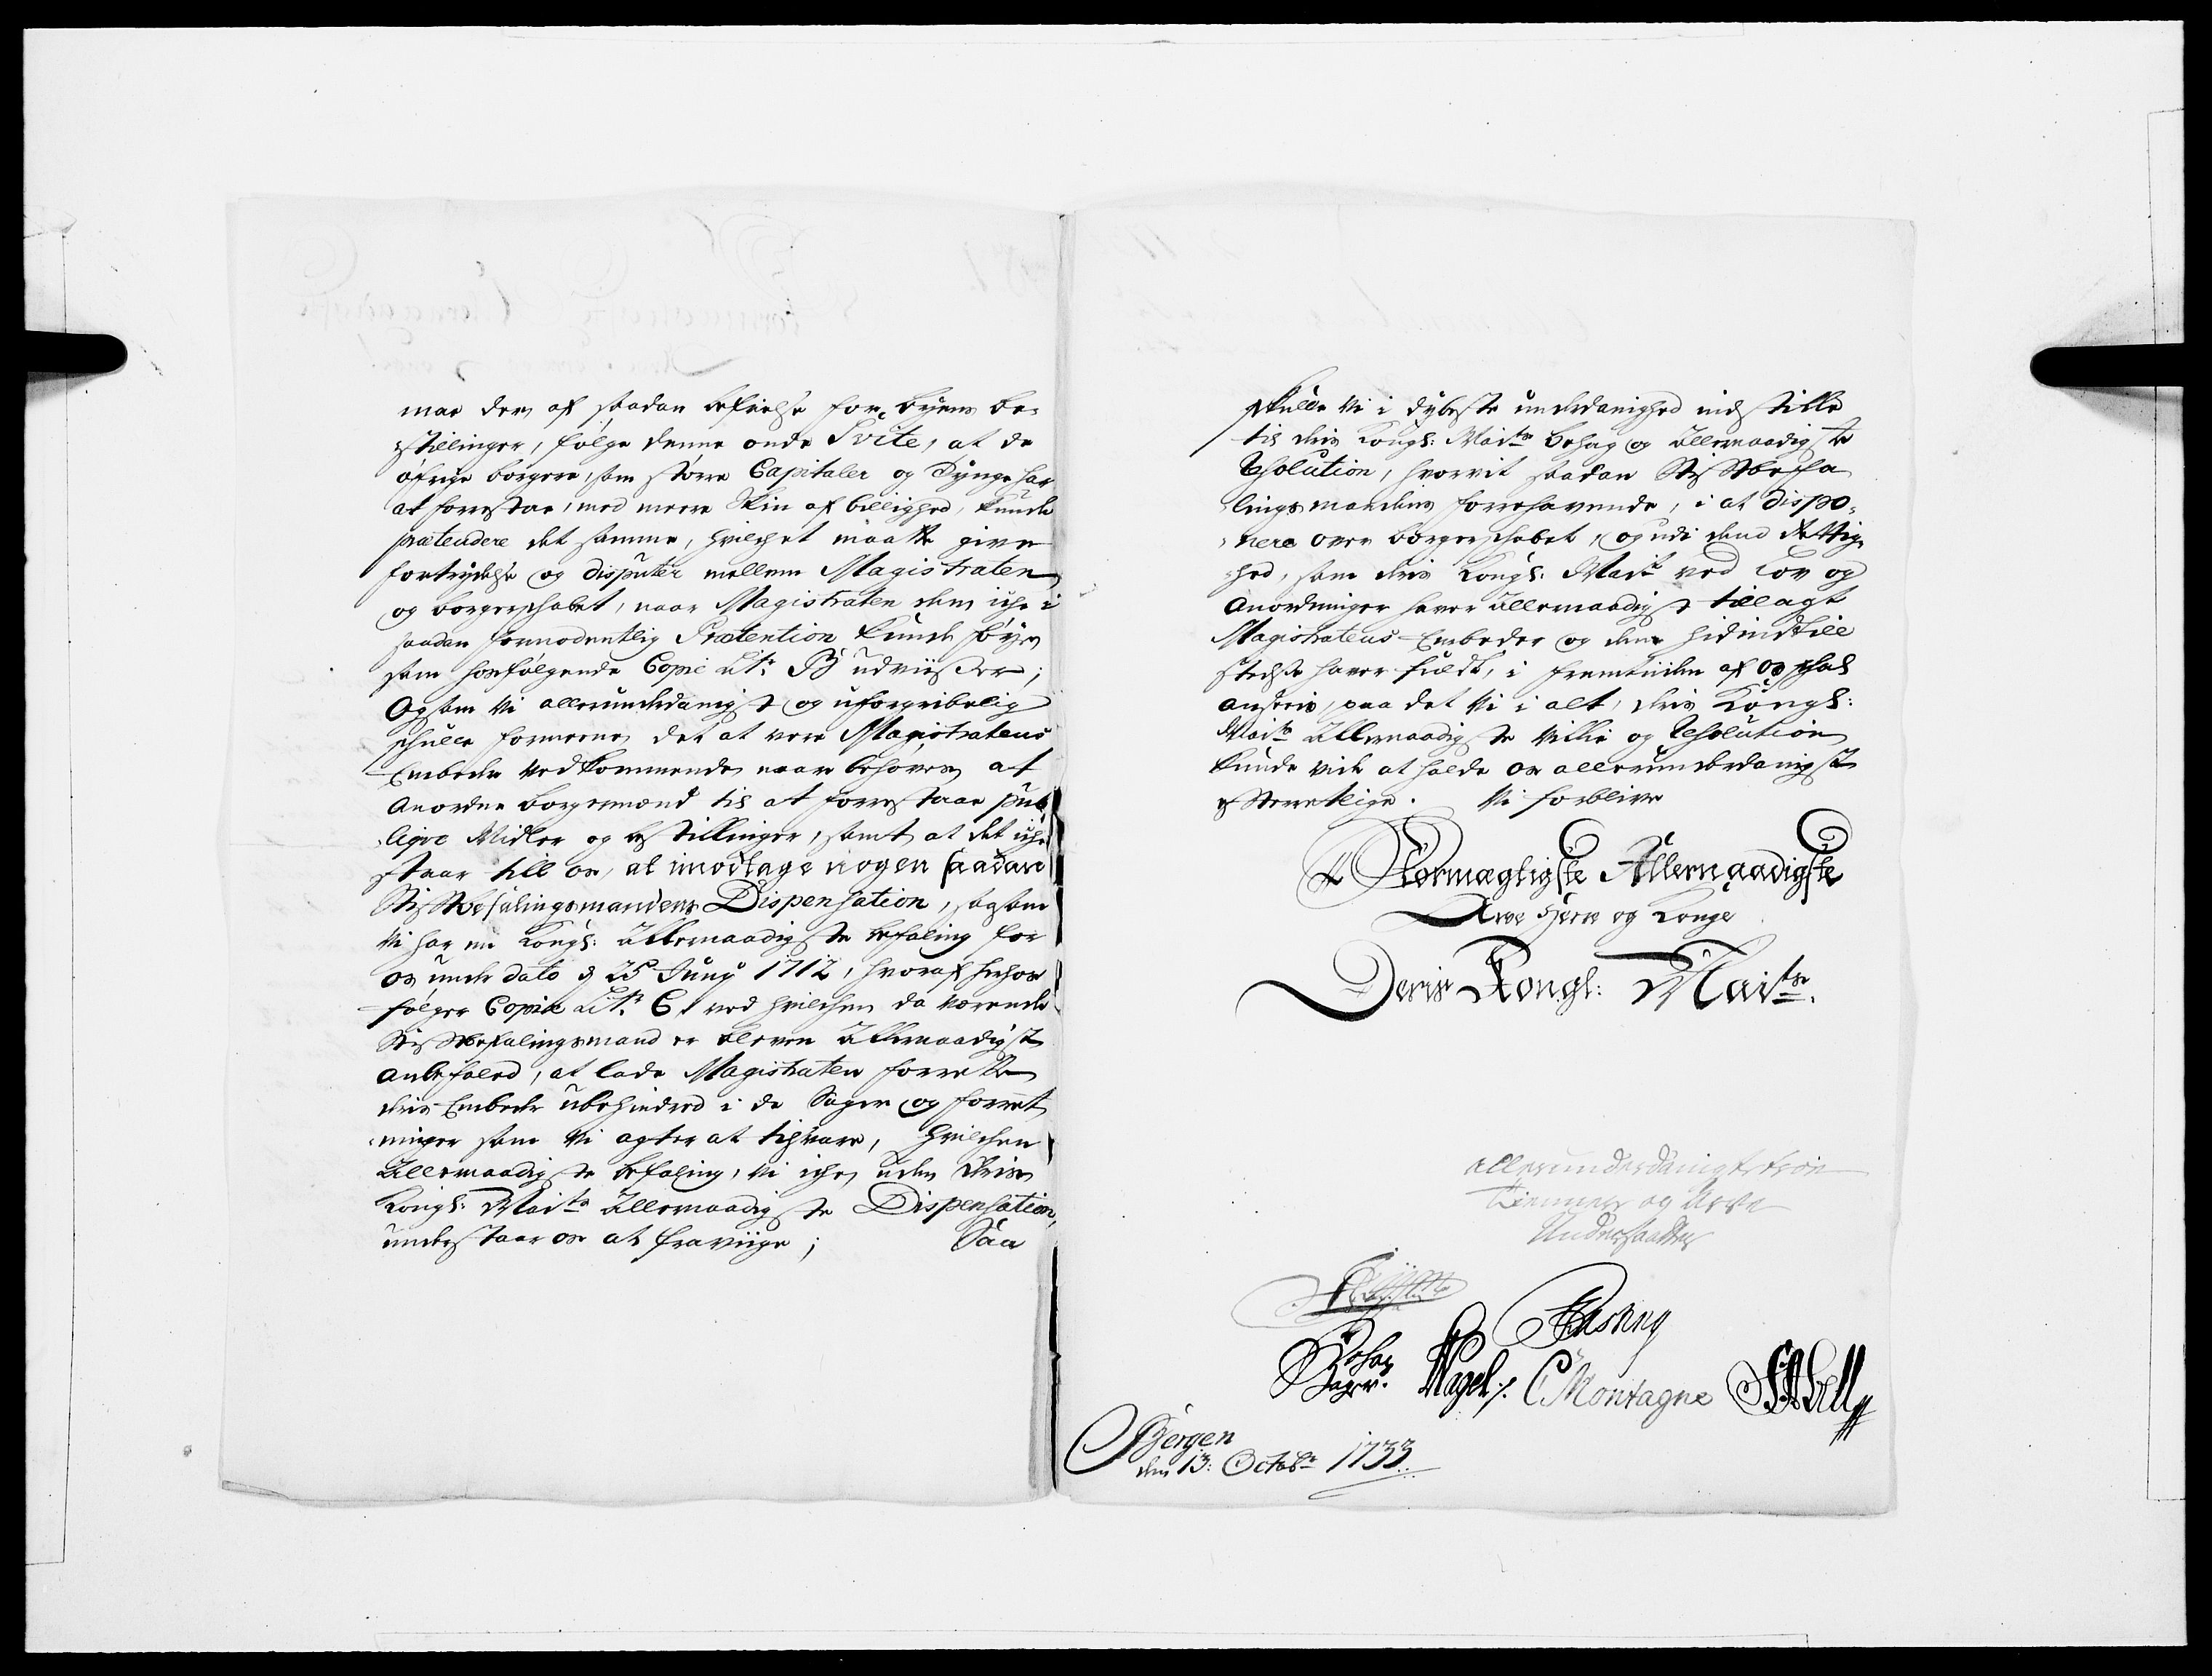 maa der af saadan befrielse for byens be-
stillinger, følge denne onde Svite, at de
øfrige borgere, som større Capitaler og Tynge har
at forrestaa, med meere skin af billighed, kunde
prætendere det samme, hvilchet maatte give
fortrydelse og disputer mellem Magistraten
og borgerschabet, naar Magistraten dem iche i
saadan formodentlig Prætention kunde føye
som hosfølgende Copie Litr. B udviiser;
Og som Vi allerunderdanigst og uforgribelig
schulle formeene det at vere Magistratens
Embede vedkommende naar behøves, at
Anordne borgermænd til at forrestaae pub-
liqve Midler og bestillinger, samt at det iche
staar till os, at imodtage nogen saadan
Stiftbefalingsmandens Dispensation, saasom
Vi har en Kongl: Allernaadigste befaling for
os under dato d 25 Junÿ 1712, hvoraf herhos
følger Copie Litr. C, ved hvilchen da værende
Stiftbefalingsmand er bleven Allernaadigst
anbefaled, at lade Magistraten forrette
deris Embede ubehindred i de Sager og forret-
ninger som Vi agter at tilsvare, hvilchen
Allernaadigste befaling, Vi iche, uden Deris
Kongl: Maits Allernaadigste Dispensation,
understaar os at fraviige; Saa
skulle Vi i dybeste underdanighed indstille
til deris Kongl: Maits behag og Allernaadigste
Resolution, hvorvit saadan Stiftbefa-
lingsmandens forrehavende, i at dispo-
nere over borgerschabet, og udi dend Rettig-
hed, som deris Kongl: Mait ved Lov og
Anordninger haver Allernaadigst tillagt
Magistratens Embeder og denne hidindtill
stedse haver fuldt, i fremtiiden af os schal
ansees, paa det Vi i alt, deris Kongl:
Maits Allernaadigste Villie og Resolution
kunde vide at holde os allerunderdanigst
efterrettlige. Vi forblive
Stormægtigste Allernaadigste
Arve Herre og Konge
Deris Kongl: Maits.
allerunderdanigst troe
tienner og Arve
Undersaatter
Fasting
Johan
Nagel. C Montagne
Bergen
den 13: Octobr 1733.